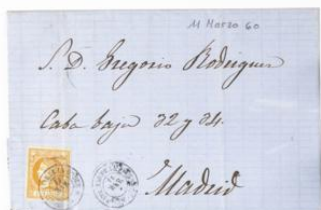 11 Marzo 60
S. D. Gregorio Rodriguez
Caba baja 32 y 34.
Madrid